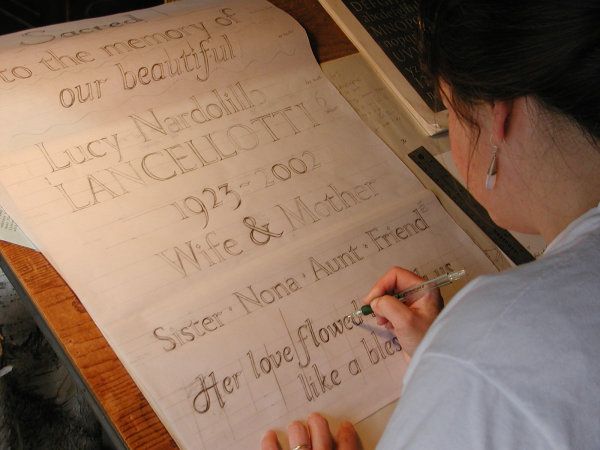 Sacred
to the memory of
our beautiful
Lucy Nardolillo
LANCELLOTTI
1923-2002
Wife & Mother
Sister · Nona · Aunt · Friend
Her love flowed us
like a